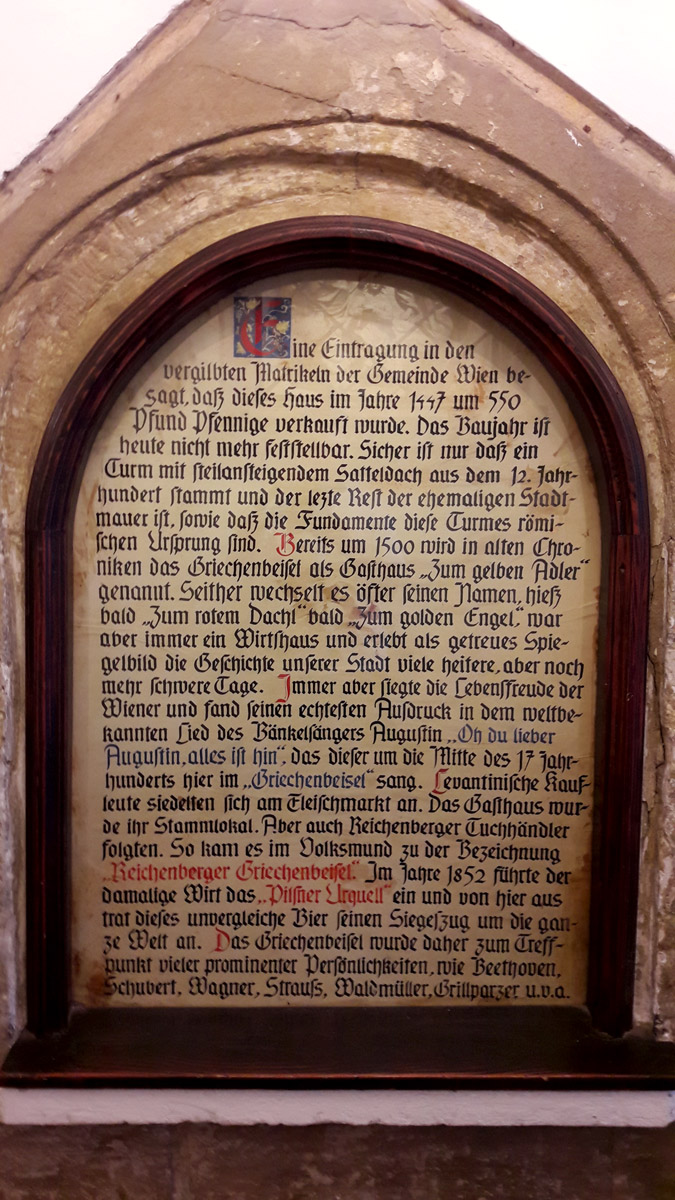 Eine Eintragung in den
vergilbten Matrikeln der Gemeinde Wien be-
sagt, daß dieses Haus im Jahre 1447 um 550
Pfund Pfennige verkauft wurde. Das Baujahr ist
heute nicht mehr feststellbar. Sicher ist nur daß ein
Turm mit steilansteigendem Satteldach aus dem 12. Jahr-
hundert stammt und der lezte Rest der ehemaligen Stadt-
mauer ist, sowie daß die Fundamente diese Turmes römi-
schen Ursprung sind. Bereits um 1500 wird in alten Chro-
niken das Griechenbeisel als Gasthaus „Zum gelben Adler“
genannt. Seither wechselt es öfter seinen Namen, hieß
bald „Zum rotem Dachl“ bald „Zum golden Engel,“ war
aber immer ein Wirtshaus und erlebt als getreues Spie-
gelbild die Geschichte unserer Stadt viele heitere, aber noch
mehr schwere Tage. Immer aber siegte die Lebensfreude der
Wiener und fand seinen echtesten Ausdruck in dem weltbe-
kannten Lied des Bänkelsängers Augustin „Oh du lieber
Augustin, alles ist hin“, das dieser um die Mitte des 17 Jahr-
hunderts hier im „Griechenbeisel“ sang. Levantinische Kauf-
leute siedelten sich am Fleischmarkt an. Das Gasthaus wur-
de ihr Stammlokal. Aber auch Reichenberger Tuchhändler
folgten. So kam es im Volksmund zu der Bezeichnung
„Reichenberger Griechenbeisel“. Im Jahre 1852 führte der
damalige Wirt das „Pilsner Urquell“ ein und von hier aus
trat dieses unvergleiche Bier seinen Siegeszug um die gan-
ze Welt an. Das Griechenbeisel wurde daher zum Treff-
punkt vieler prominenter Persönlichkeiten, wie Beethoven,
Schubert, Wagner, Strauss, Waldmüller, Grillparzer u.v.a.